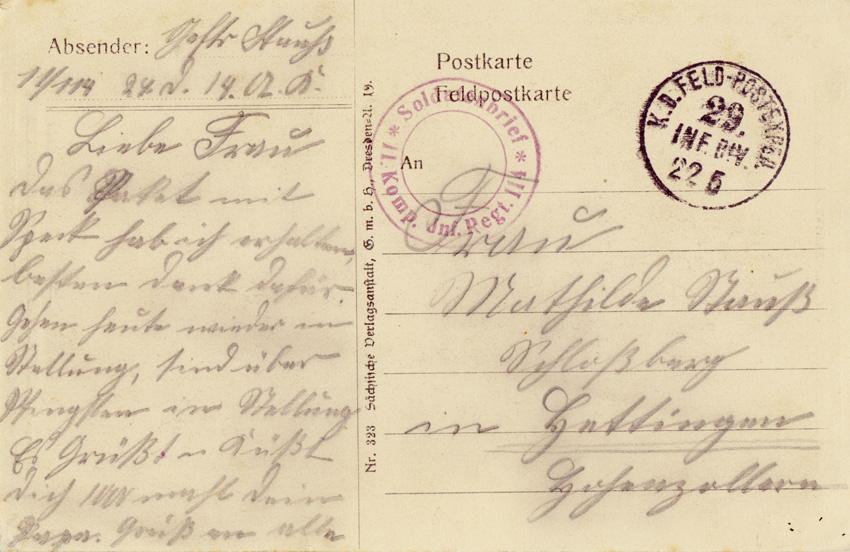 Absender: Gefr Stauß
11/114 29. D. 14. A. K.
Liebe Frau
das Paket mit
Speck hab ich erhalten,
besten Dank dafür.
Gehen heute wieder in
Stellung, sind über
Pfingsten in Stellung
Es Grüßt u Küßt
Dich 1000 mahl Dein
Papa. Gruß an alle
Nr. 323 Sächsische Verlagsanstalt, G. m. b. H., Dresden-A. 19.
Postkarte
Feldpostkarte
* Soldatenbrief *
11. Komp. Inf. Regt. 114
K.D. FELD-POSTEXPED.
29.
INF. DIV.
22 5
An
Frau
Mathilde Stauß
Schloßberg
in Hettingen
Hohenzollern